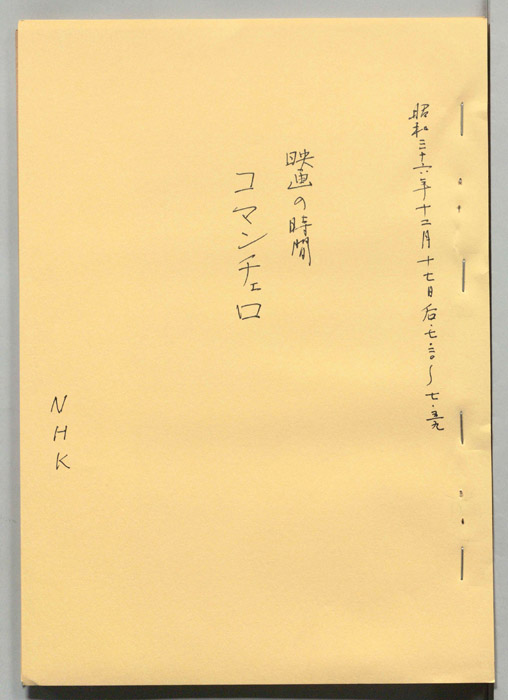 昭和三十六年十二月十七日后・七・三〇〜七・五九
映画の時間
コマンチェロ
NHK